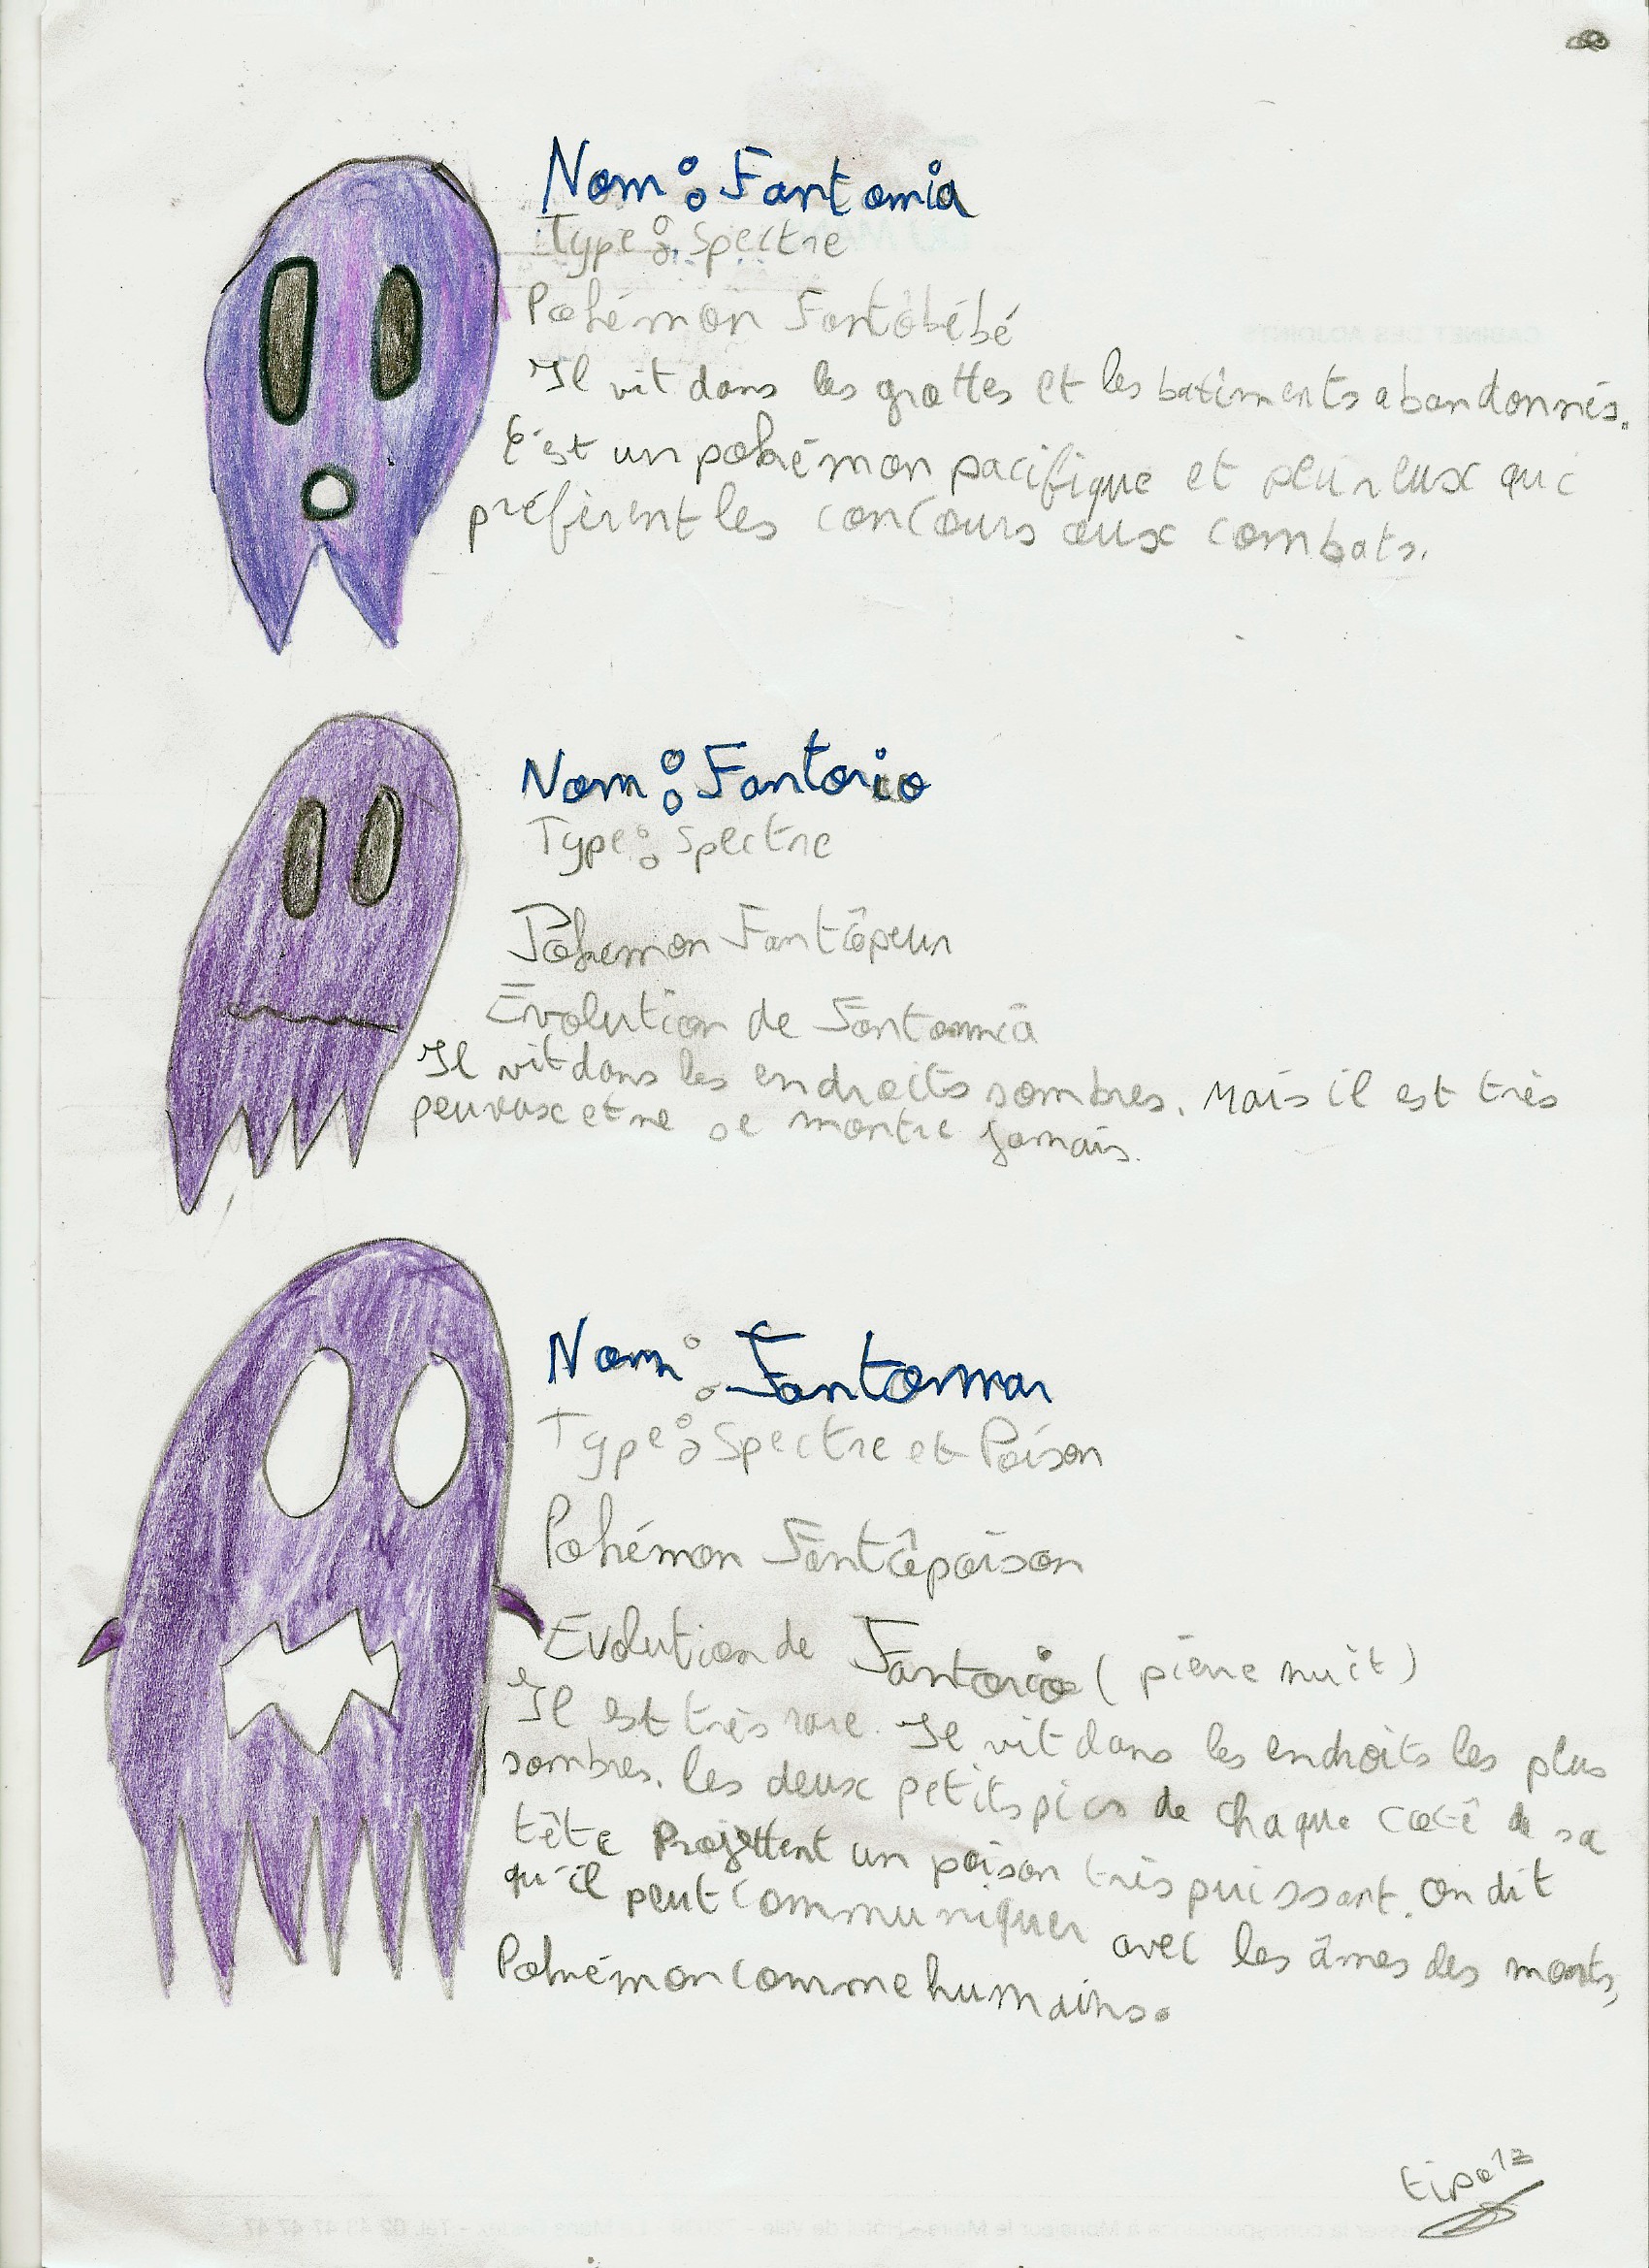 Nom : Fantomia
Type : Spectre
Pokémon Fantôbébé
Il vit dans les grottes et les batiments abandonnés.
C'est un pokémon pacifique et pleureux qui
préfèrent les concours aux combats.
Nom : Fantorio
Type : Spectre
Pokemon Fantôpeur
Evolution de Fantomia
Il vit dans les endroits sombres. Mais il est très
peureux et ne se montre jamais.
Nom : Fantomar
Type : Spectre et Poison
Pokémon Fantôpoison
Evolution de Fantorio ( pierre nuit )
Il est très rare. Il vit dans les endroits les plus
sombres. les deux petits pics de chaque coté de sa
tête Projettent un poison très puissant. On dit
qu'il peut communiquer avec les âmes des morts,
Pokémon comme humains.
CABINET DES ADJOINTS